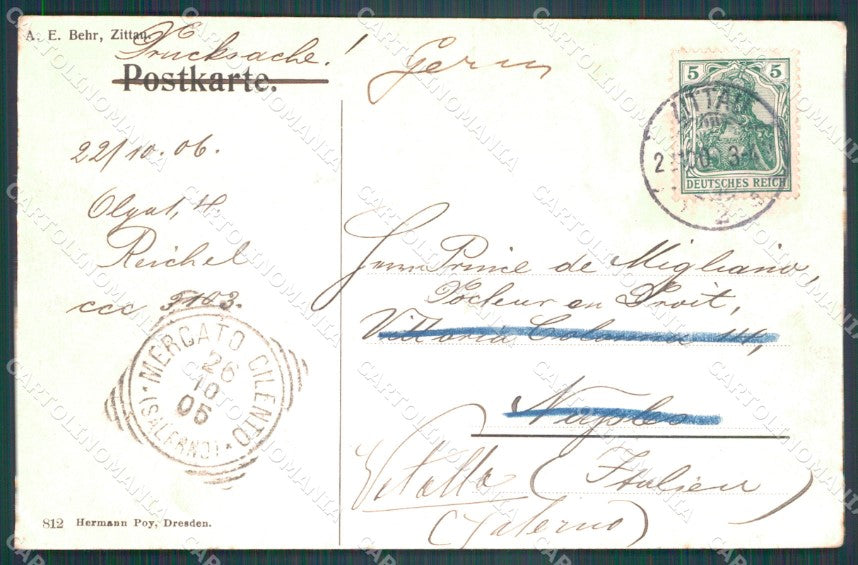 A. E. Behr, Zittau.
Drucksache!
Postkarte.
22/10.06.
Reichel
ccc 3103.
MERCATO CILENTO
26
10
05
(SALERNO)
812 Hermann Poy, Dresden.
5 5
DEUTSCHES REICH
ZITTAU
3-4
2
Herrn Prince de Migliano,
Docteur en Droit,
Vittoria Colonna 14,
Naples
(Italien)
(Salerno)
CARTOLINOMANIA